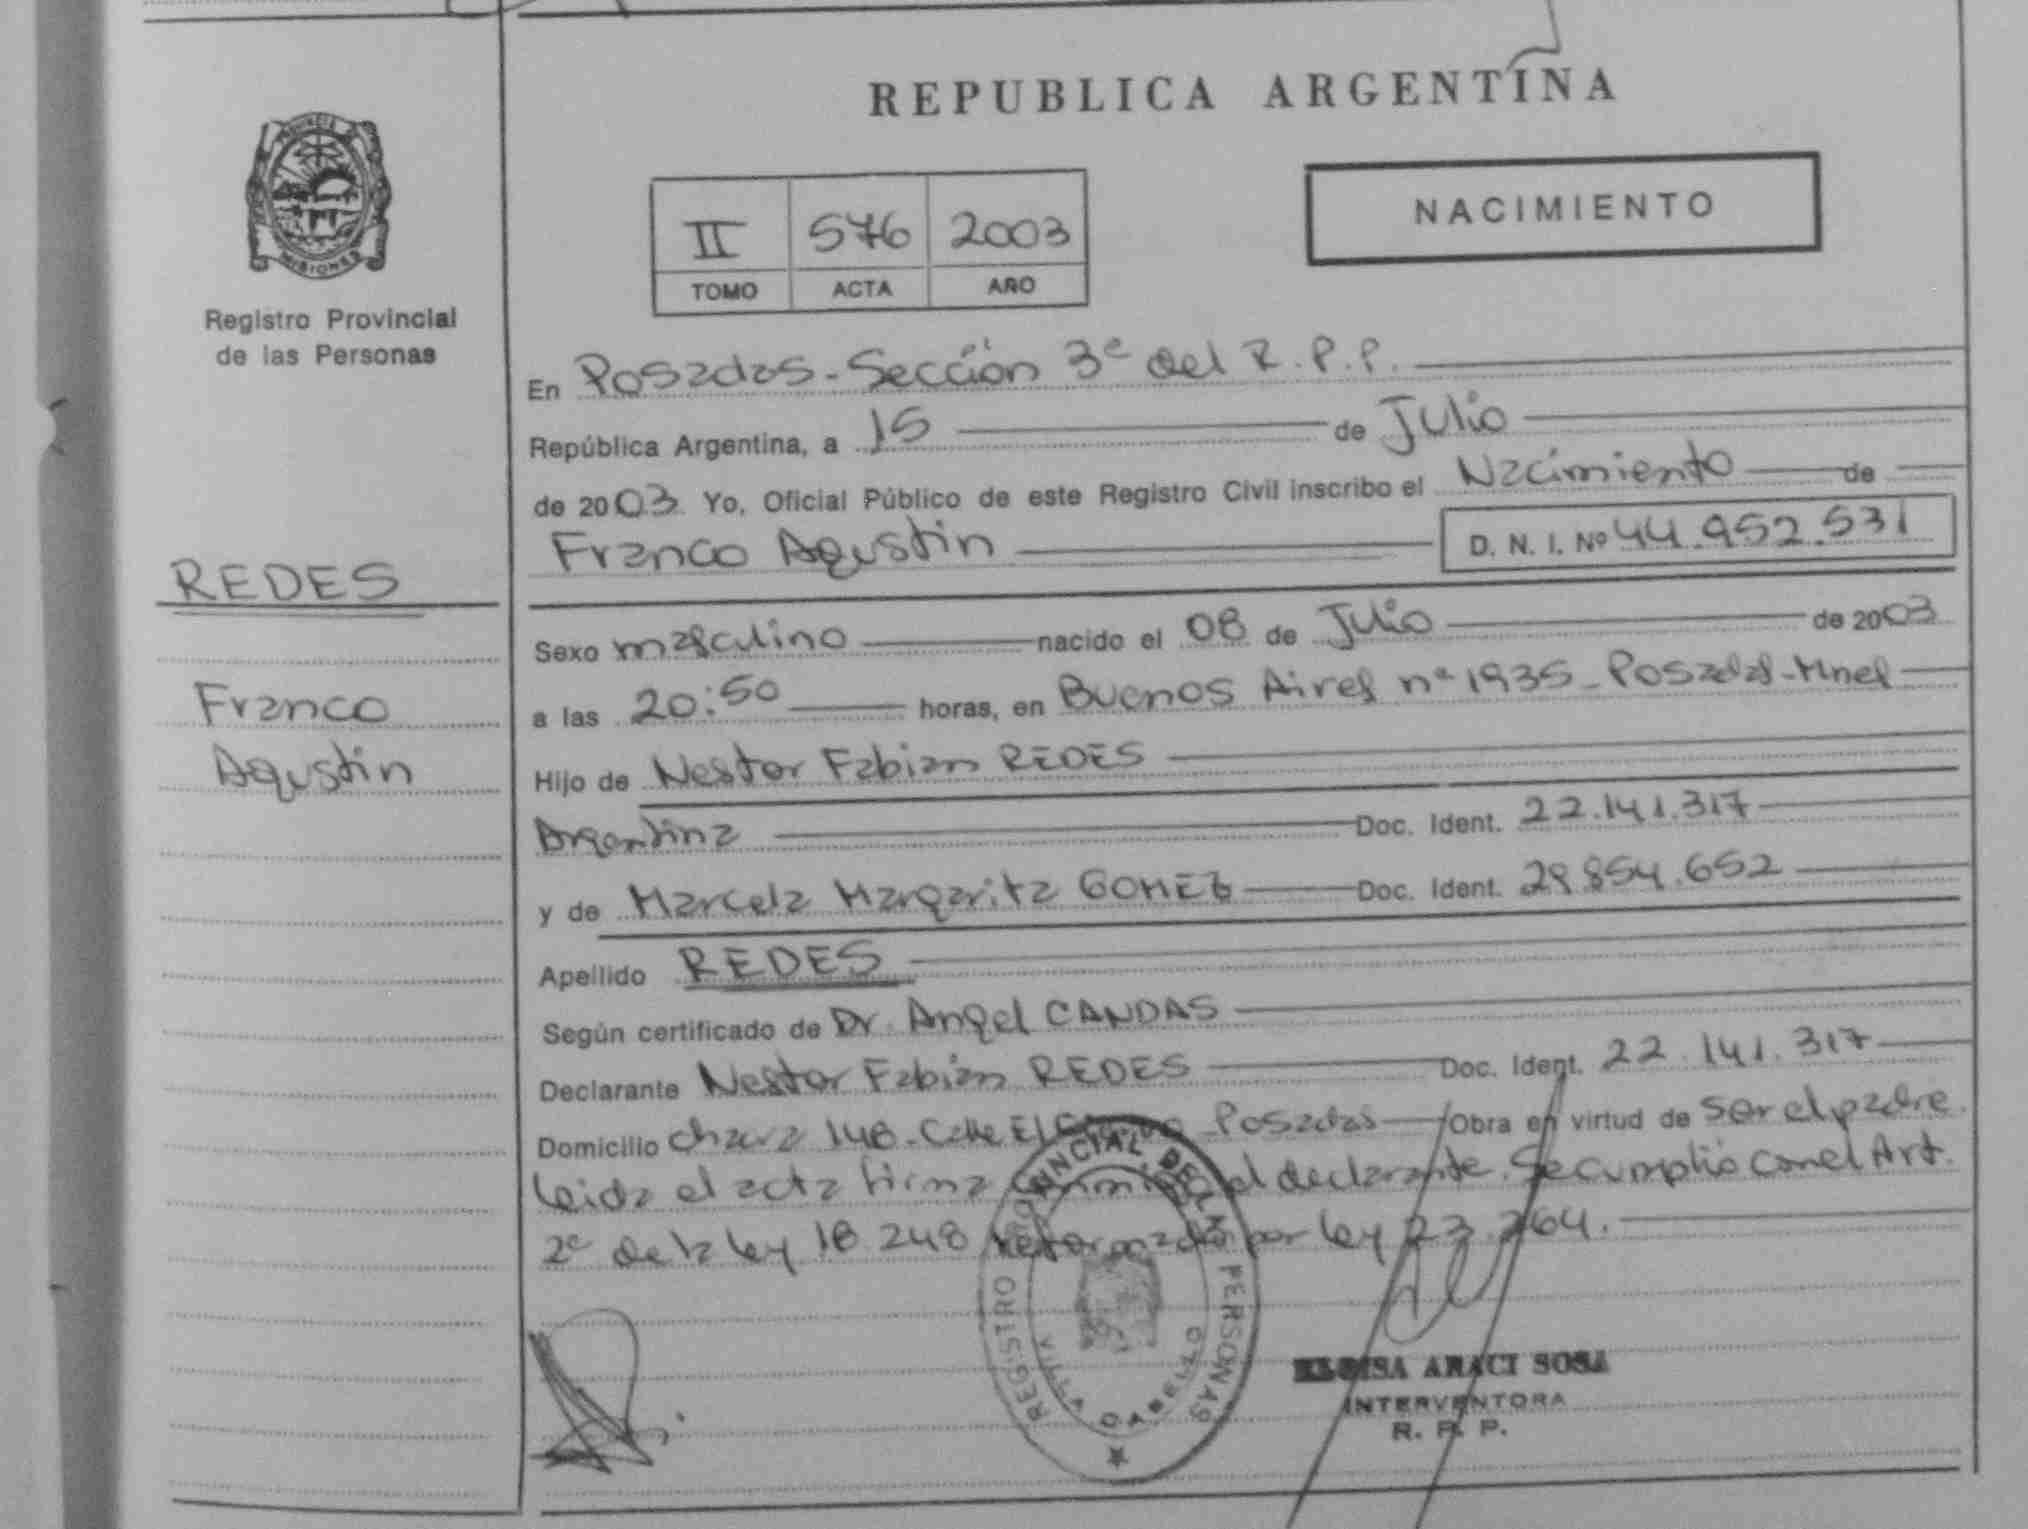 REPUBLICA ARGENTINA
PROVINCIA DE
MISIONES
Registro Provincial
de las Personas
II 576 2003
TOMO ACTA AÑO
NACIMIENTO
En Posadas - Sección 3ª del R. P. P.
República Argentina, a 15 de Julio
de 2003 Yo, Oficial Público de este Registro Civil inscribo el Nacimiento de
Franco Agustin D. N. I. Nº 44.952.531
REDES
Franco
Agustin
Sexo masculino nacido el 08 de Julio de 2003
a las 20:50 horas, en Buenos Aires nº 1935 - Posadas - Mnes
Hijo de Nestor Fabian REDES
Argentina Doc. Ident. 22.141.317
y de Marcela Margarita GOMEZ Doc. Ident. 29.854.652
Apellido REDES
Según certificado de Dr. Angel CANDAS
Declarante Nestor Fabian REDES Doc. Ident. 22.141.317
Domicilio chacra 148 - Calle El Posadas Obra en virtud de ser el padre.
Leida el acta firma el declarante. Se cumplió con el Art.
2º de la ley 18.248 por ley 23.264.
REGISTRO PROVINCIAL DE LAS PERSONAS
VILLA CABELLO
ELOISA ARACI SOSA
INTERVENTORA
R. P. P.